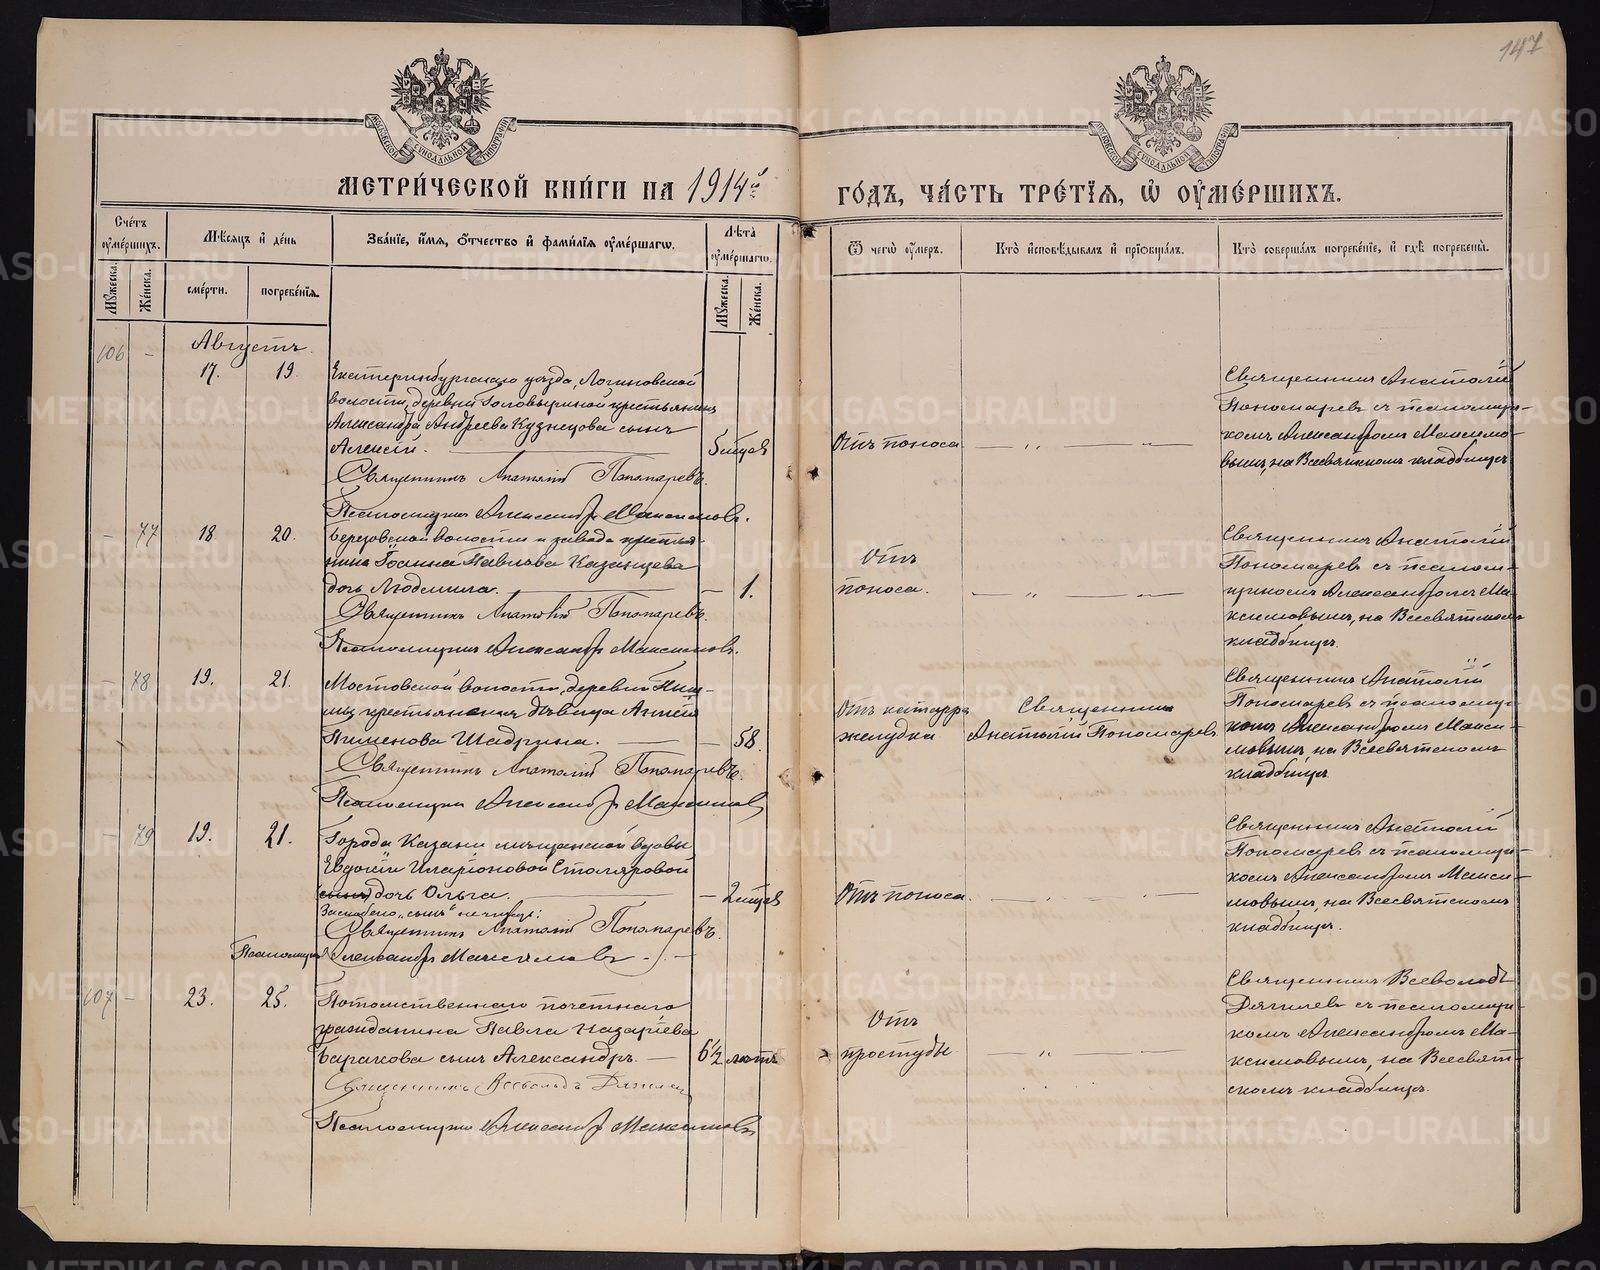 147
МОСКОВСКОЙ СѴНОДАЛЬНОЙ ТИПОГРАФІИ
МОСКОВСКОЙ СѴНОДАЛЬНОЙ ТИПОГРАФІИ
МЕТРИ́ЧЕСКОЙ КНИ́ГИ НА 1914й
ГО́ДЪ, ЧА́СТЬ ТРЕ́ТЇѦ, Ѡ҆ ОУ҆МЕ́РШИХЪ.
Сче́тъ оу҆ме́ршихъ.
Мꙋжеска.
Же́нска.
Мѣ́сѧцъ и҆ де́нь
сме́рти.
погребе́нїѧ.
Зва́нїе, и҆́мѧ, ѻ҆́тчество и҆ фами́лїѧ оу҆ме́ршагѡ.
Лѣ́та оу҆ме́ршагѡ.
Мꙋжеска.
Же́нска.
Ѿ чегѡ̀ оу҆́меръ.
Кто̀ и҆сповѣ́дывалъ и҆ прїѻбща́лъ.
Кто̀ соверша́лъ погребе́нїе, и҆ гдѣ̀ погребены̀.
Августъ
106 - 17. 19.
Екатеринбургскаго уѣзда, Логиновской
волости, деревни Головыриной крестьянина
Александра Андреева Кузнецова сынъ
Алексій. 5 мѣсяц
Священникъ Анатолій Пономаревъ.
Псаломщикъ Александръ Максимовъ.
Отъ поноса
Священникъ Анатолій
Пономаревъ съ псаломщи-
комъ Александромъ Максимо-
вымъ, на Всесвятскомъ кладбищѣ
- 77 18 20.
Березовской волости и завода крестья-
нина Іоанна Павлова Казанцева
дочь Людмила. - 1.
Священникъ Анатолій Пономаревъ.
Псаломщикъ Александръ Максимовъ.
Отъ
поноса.
Священникъ Анатолій
Пономаревъ съ псалом-
щикомъ Александромъ Ма-
ксимовымъ, на Всесвятскомъ
кладбищѣ.
- 78 19. 21.
Мостовской волости, деревни
крестьянская дѣвица
Пименова Шадрина. - 58.
Священникъ Анатолій Пономаревъ.
Псаломщикъ Александръ Максимовъ
Отъ катарра
желудка
Священникъ
Анатолій Пономаревъ
Священникъ Анатолій
Пономаревъ съ псаломщи-
комъ Александромъ Макси-
мовымъ, на Всесвятскомъ
кладбищѣ
- 79 19. 21.
Города Казани мѣщанской вдовы
Евдокіи Иларіоновой Столяровой
(сынъ) дочь Ольга. - 2 мѣсяц
Заскоблено „сынъ" не читать:
Священникъ Анатолій Пономаревъ.
Псаломщикъ Александръ Максимовъ.
Отъ поноса.
Священникъ Анатолій
Пономаревъ съ псаломщи-
комъ Александромъ Макси-
мовымъ, на Всесвятскомъ
кладбищѣ.
107 - 23. 25.
Потомственнаго почетнаго
гражданина Павла Назаріева
сынъ Александръ. - 6½ лѣтъ
Священникъ Всеволодъ Дягилев
Псаломщикъ Александръ Максимовъ
Отъ
простуды
Священникъ Всеволодъ
Дягилевъ съ псаломщи-
комъ Александромъ Ма-
ксимовымъ, на Всесвят-
скомъ кладбищѣ.
METRIKI.GASO-URAL.RU